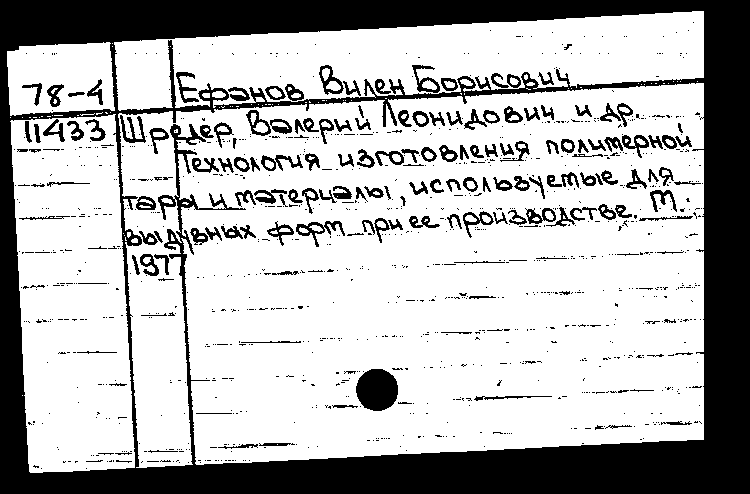 78-4 Ефанов, Вилен Борисович
11433 Шредер, Валерий Леонидович и др.
Технология изготовления полимерной
тары и материалы, используемые для
выдувных форм при ее производстве. М.
1977